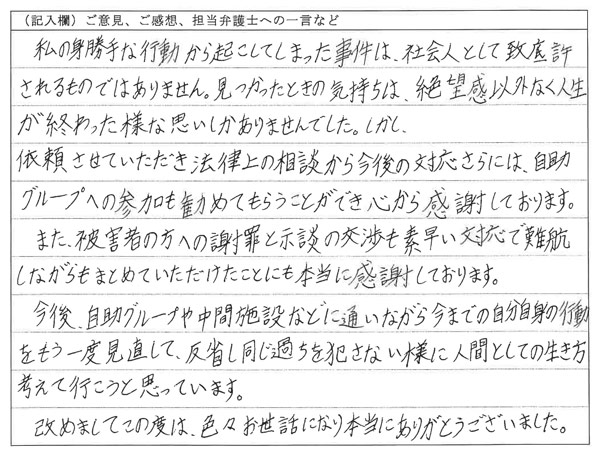 （記入欄）ご意見、ご感想、担当弁護士への一言など
私の身勝手な行動から起こしてしまった事件は、社会人として致底許
されるものではありません。見つかったときの気持ちは、絶望感以外なく人生
が終わった様な思いしかありませんでした。しかし、
依頼させていただき法律上の相談から今後の対応さらには、自助
グループへの参加も勧めてもらうことができ心から感謝しております。
また、被害者の方への謝罪と示談の交渉も素早い対応で難航
しながらもまとめていただけたことにも本当に感謝しております。
今後、自助グループや中間施設などに通いながら今までの自分自身の行動
をもう一度見直して、反省し同じ過ちを犯さない様に人間としての生き方
考えて行こうと思っています。
改めましてこの度は、色々お世話になり本当にありがとうございました。